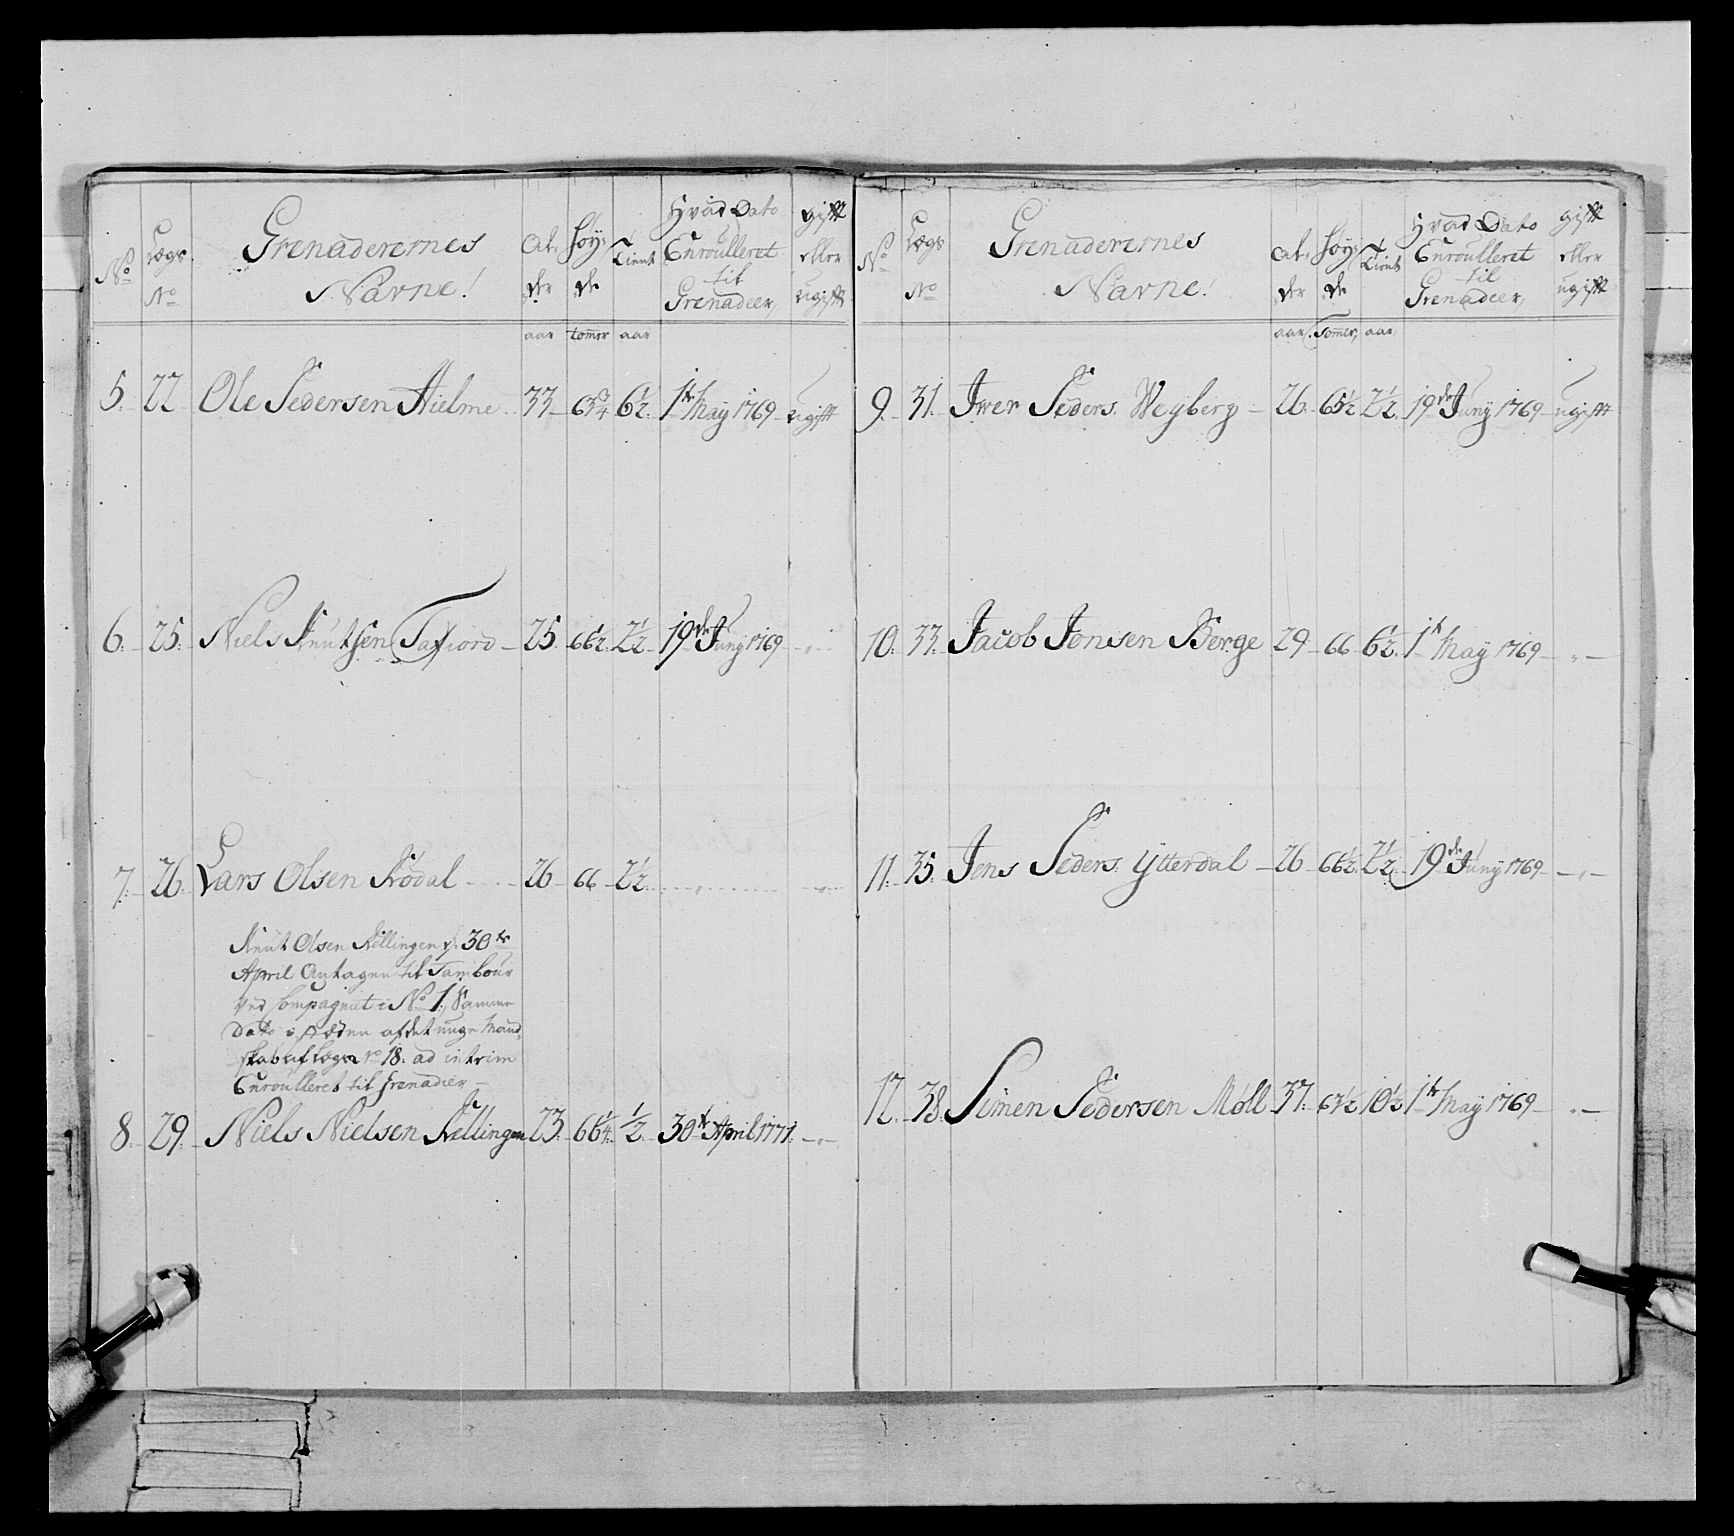 No Lægs No Grenaderernes Navne! Al-der Høy-de Tient Hvad Dato Enroulleret til Grenadeer, gift eller ugift
aar tomer aar
5. 22 Ole Pedersen Hielme 33 65 3/4 6 1/2 1te May 1769 ugift
6. 25. Niels Knutsen Tafiord 25. 66 1/2 2 1/2 19de Juny 1769 „
7. 26. Lars Olsen Rødal 26 66 2 1/2 „ „
Knut Olsen Rellingen d. 30te
April Antagen til Tambour
ved Compagniet i No 1, Samme
Dato i steden af det unge Mand-
skab af Lægs no 18. ad intrim
Enroulleret til Grenadier
8. 29. Niels Nielsen Rellingen 23. 66 1/4 1/2 30te April 1771. „
No Lægs No Grenaderernes Navne! Al-der Høy-de Tient Hvad Dato Enroulleret til Grenadeer, gift eller ugift
aar Tomer, aar
9. 31. Iver Peders. Weyberg 26. 65 1/2 2 1/2 19de Juny 1769 ugift
10. 33. Jacob Jonsen Berge 29 66 6 1/2 1te May 1769 „
11. 35. Jens Peders. Ytterdal 26 66 1/2 2 1/2 19de Juny 1769 „
12. 38. Simen Pedersen Møll 37. 67 1/2 10 1/2 1te May 1769 „